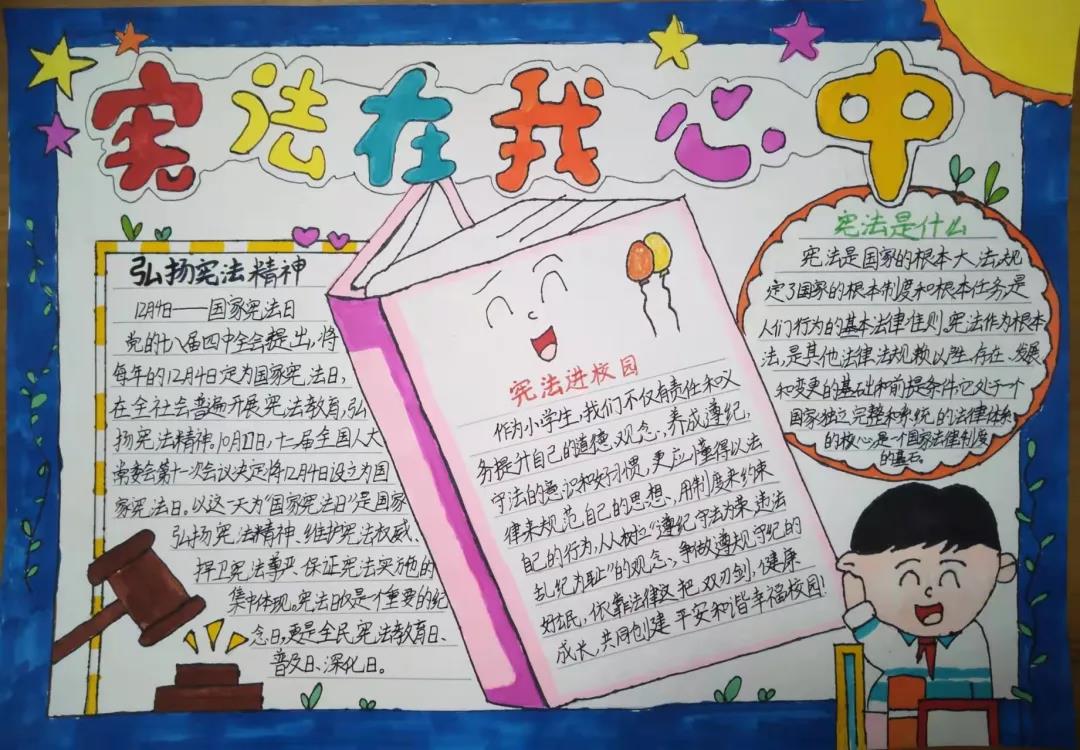 宪法在我心中
弘扬宪法精神
12月4日——国家宪法日
党的十八届四中全会提出,将
每年的12月4日定为国家宪法日,
在全社会普遍开展宪法教育,弘
扬宪法精神.10月27日,十一届全国人大
常委会第十一次会议决定将12月4日设立为国
家宪法日。以这一天为“国家宪法日”是国家
弘扬宪法精神、维护宪法权威、
捍卫宪法尊严、保证宪法实施的
集中体现。宪法日仅是一个重要的纪
念日,更是全民宪法教育日、
普及日、深化日。
宪法进校园
作为小学生,我们不仅有责任和义
务提升自己的道德观念、养成遵纪,
守法的意识和好习惯,更应懂得以法
律来规范自己的思想、用制度来约束
自己的行为,人人树立“遵纪守法为荣、违法
乱纪为耻”的观念、争做遵规守纪的
好公民,依靠法律这把双刃剑,健康
成长,共同创建平安和谐幸福校园!
宪法是什么
宪法是国家的根本大法,规
定了国家的根本制度和根本任务,是
人们行为的基本法律准则.宪法作为根本
法,是其他法律法规赖以产生、存在、发展
和变更的基础和前提条件,它处于一个
国家独立、完整和系统的法律体系
的核心,是一个国家法律制度
的基石。